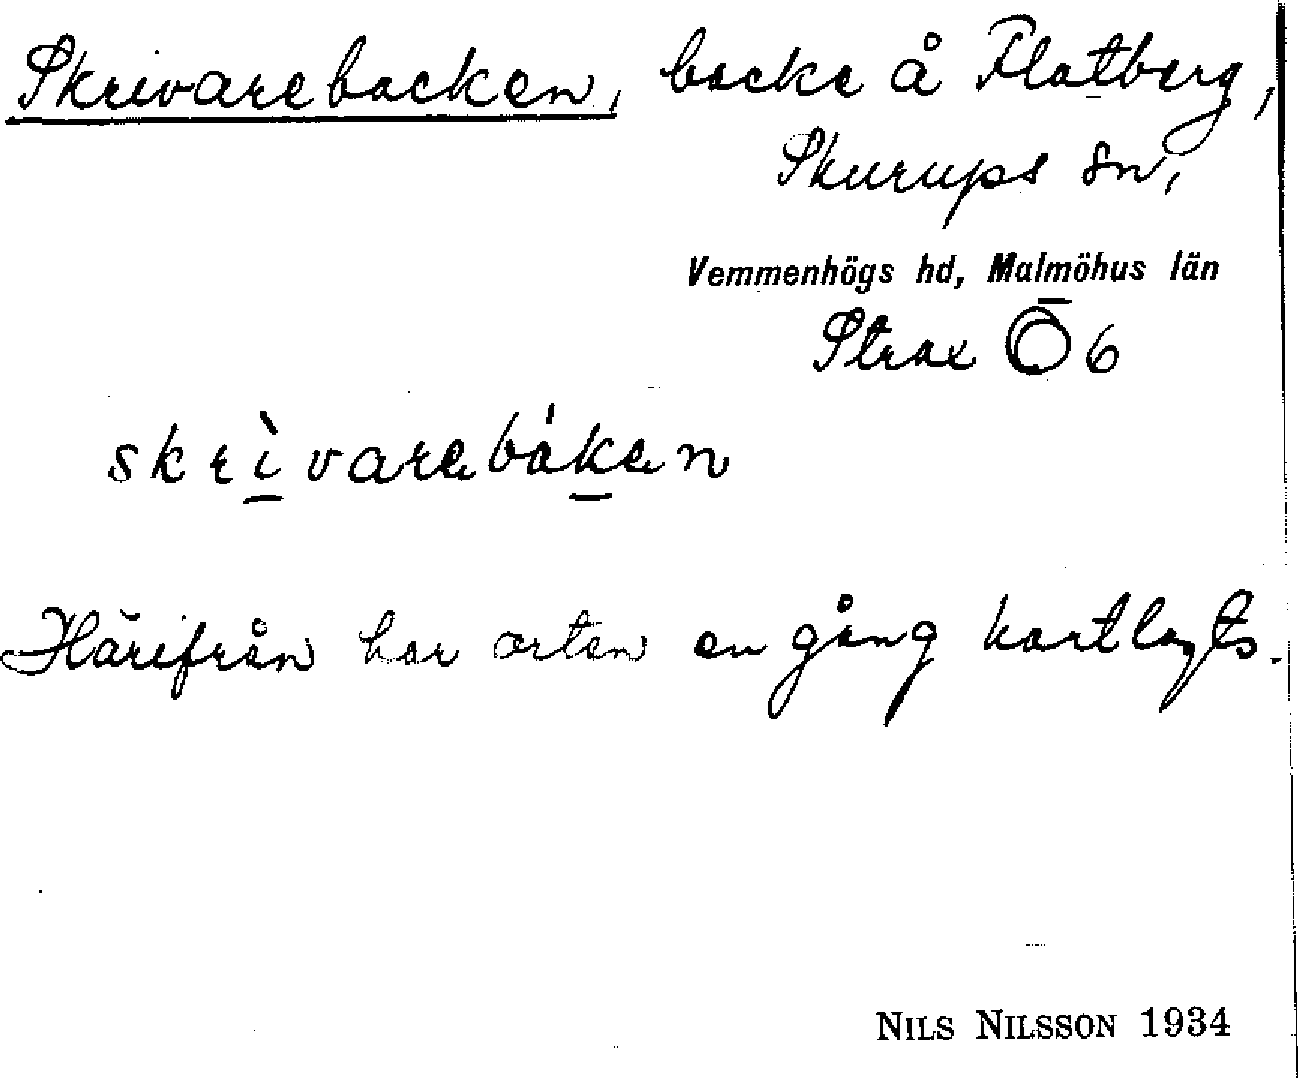 Skrivarebacken, backe å Flatberg,
Skurups sn,
Vemmenhögs hd, Malmöhus län
Strax Ö 6
skrìvarebákan
Härifrån har orten en gång kartlagts.
NILS NILSSON 1934